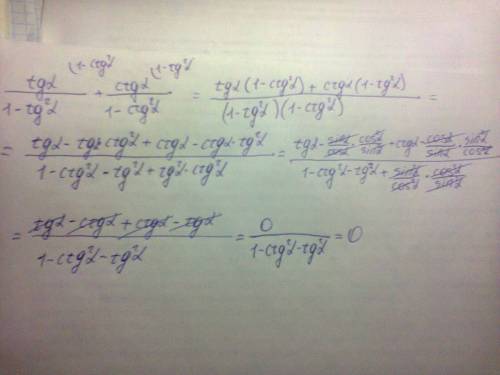 tgα (1-ctg²α / 1-tg²α + ctgα (1-tg²α / 1-ctg²α = tgα(1-ctg²α) + ctgα(1-tg²α) / (1-tg²α)(1-ctg²α) =
= tgα - tgα·ctg²α + ctgα - ctgα·tg²α / 1-ctg²α - tg²α + tg²α·ctg²α = tgα - sinα/cosα · cos²α/sin²α + ctgα - cosα/sinα · sin²α/cos²α / 1-ctg²α-tg²α + sin²α/cos²α · cos²α/sin²α
= tgα - ctgα + ctgα - tgα / 1-ctg²α-tg²α = 0 / 1-ctg²α-tg²α = 0